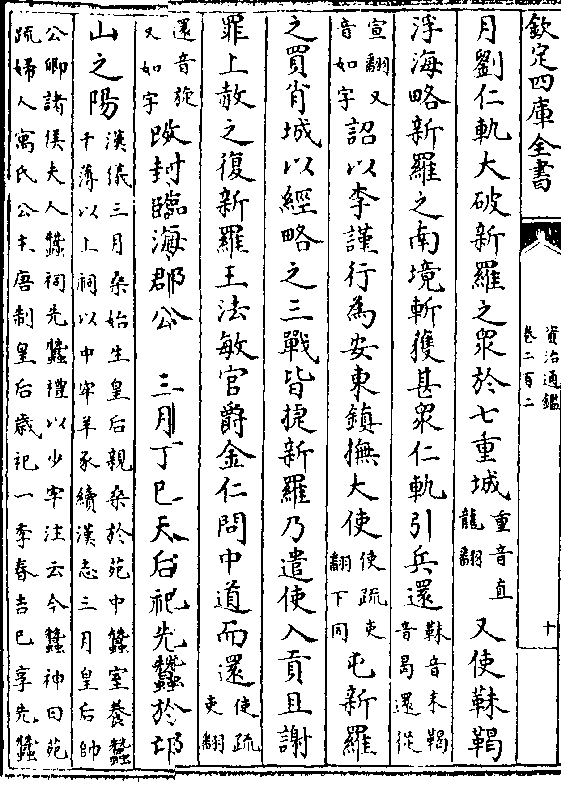 欽定四庫全書
資治通鑑
卷二百二
十
月劉仁軌大破新羅之眾於七重城
重音直
龍翻
又使靺鞨
浮海略新羅之南境斬獲甚眾仁軌引兵還
靺音末鞨
音曷還從
宣翻又
音如字
詔以李謹行為安東鎮撫大使
使疏吏
翻下同
屯新羅
之買肖城以經略之三戰皆捷新羅乃遣使入貢且謝
罪上赦之復新羅王法敏官爵金仁問中道而還
使疏
吏翻
還音旋
又如字
改封臨海郡公　三月丁巳天后祀先蠶於邙
山之陽
漢儀三月桑始生皇后親桑於苑中蠶室養蠶
千薄以上祠以中牢羊豕續漢志三月皇后帥
公卿諸侯夫人蠶祠先蠶禮以少牢注云今蠶神曰苑
窳婦人寓氏公主唐制皇后歲祀一季春吉巳享先蠶